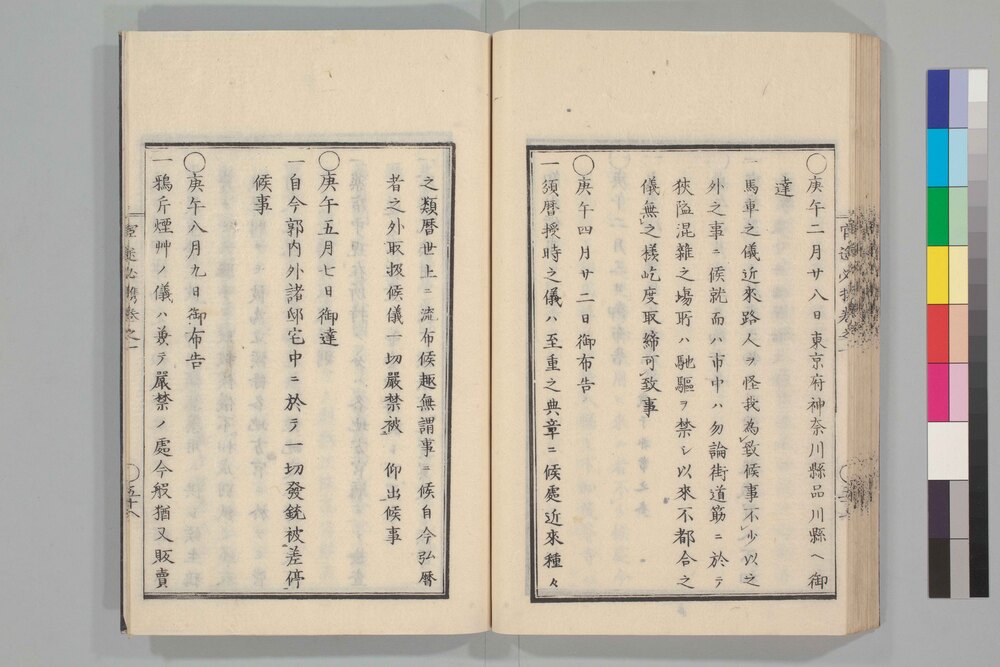 ◯庚午二月廿八日東京府神奈川縣品川縣ヘ御
達
一馬車之儀近來路人ヲ怪我為致候事不少以之
外之事ニ候就而ハ市中ハ勿論街道筋ニ於テ
狹隘混雜之場所ハ馳驅ヲ禁シ以來不都合之
儀無之樣屹度取締可致事
◯庚午四月廿二日御布告
一頒曆授時之儀ハ至重之典章ニ候處近來種々
之類曆世上ニ流布候趣無謂事ニ候自今弘曆
者之外取扱候儀一切嚴禁被 仰出候事
◯庚午五月七日御達
一自今郭內外諸邸宅中ニ於テ一切發銃被差停
候事
◯庚午八月九日御布告
一鴉片煙艸ノ儀ハ兼テ嚴禁ノ處今般猶又販賣
官途必携卷之一
五十八